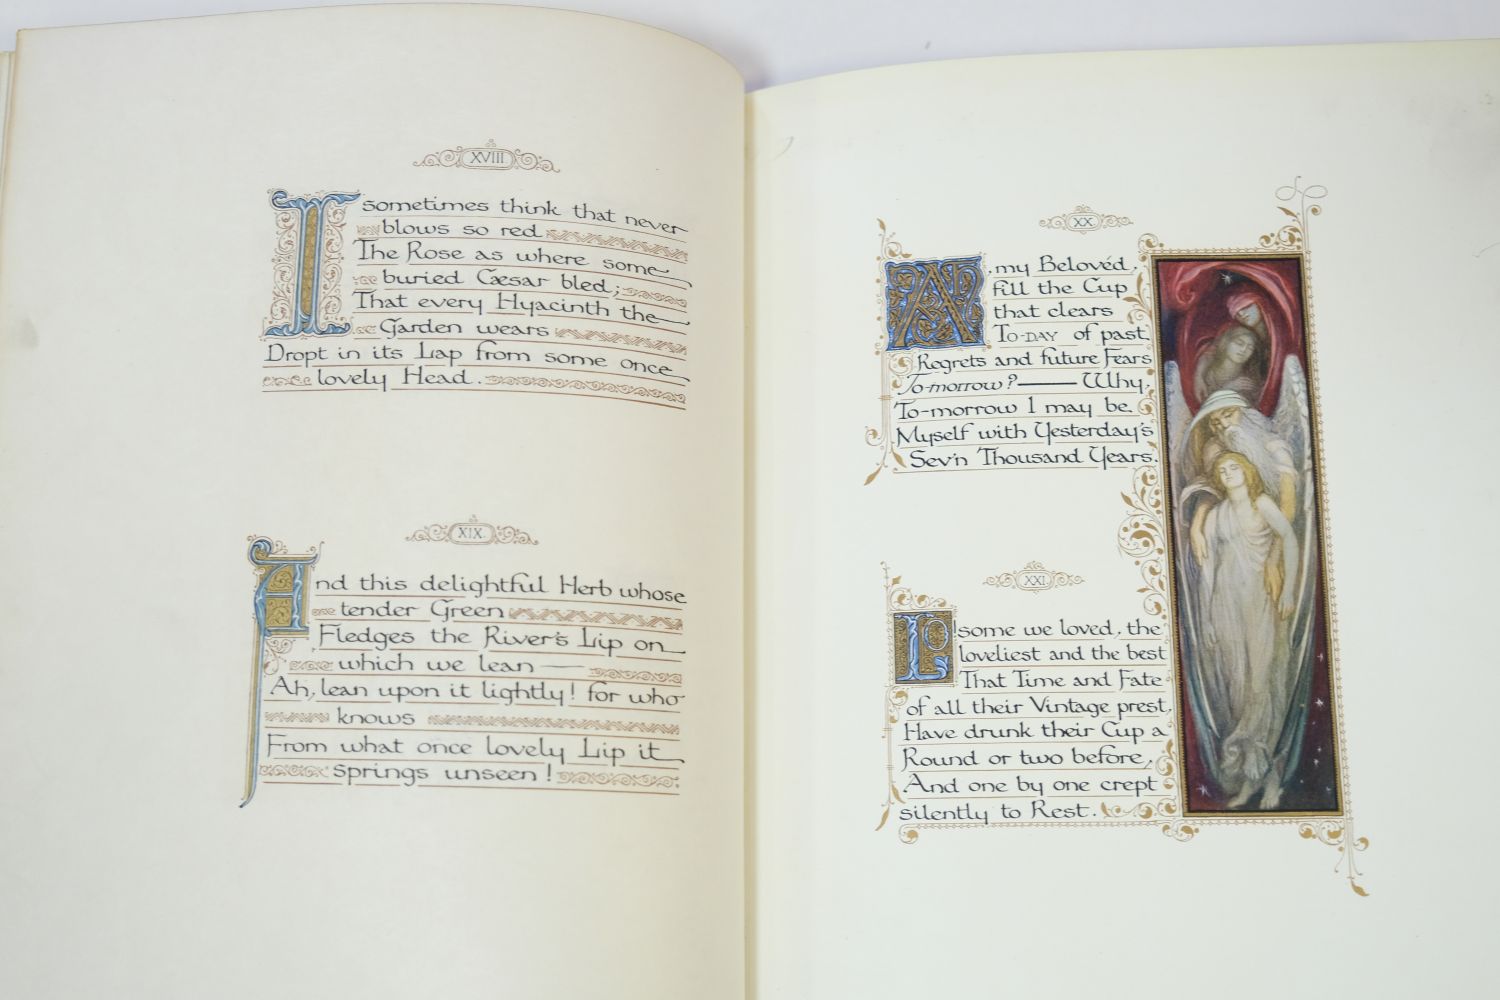 XVIII
I sometimes think that never
blows so red
The Rose as where some
buried Cæsar bled;
That every Hyacinth the
Garden wears
Dropt in its Lap from some once
lovely Head.
XIX.
And this delightful Herb whose
tender Green
Fledges the River's Lip on
which we lean —
Ah, lean upon it lightly! for who
knows
From what once lovely Lip it
springs unseen!
XX
Ah, my Belovéd,
fill the Cup
that clears
TO-DAY of past
Regrets and future Fears
To-morrow? — Why,
To-morrow I may be
Myself with Yesterday's
Sev'n Thousand Years.
XXI
Lo! some we loved, the
loveliest and the best
That Time and Fate
of all their Vintage prest,
Have drunk their Cup a
Round or two before,
And one by one crept
silently to Rest.